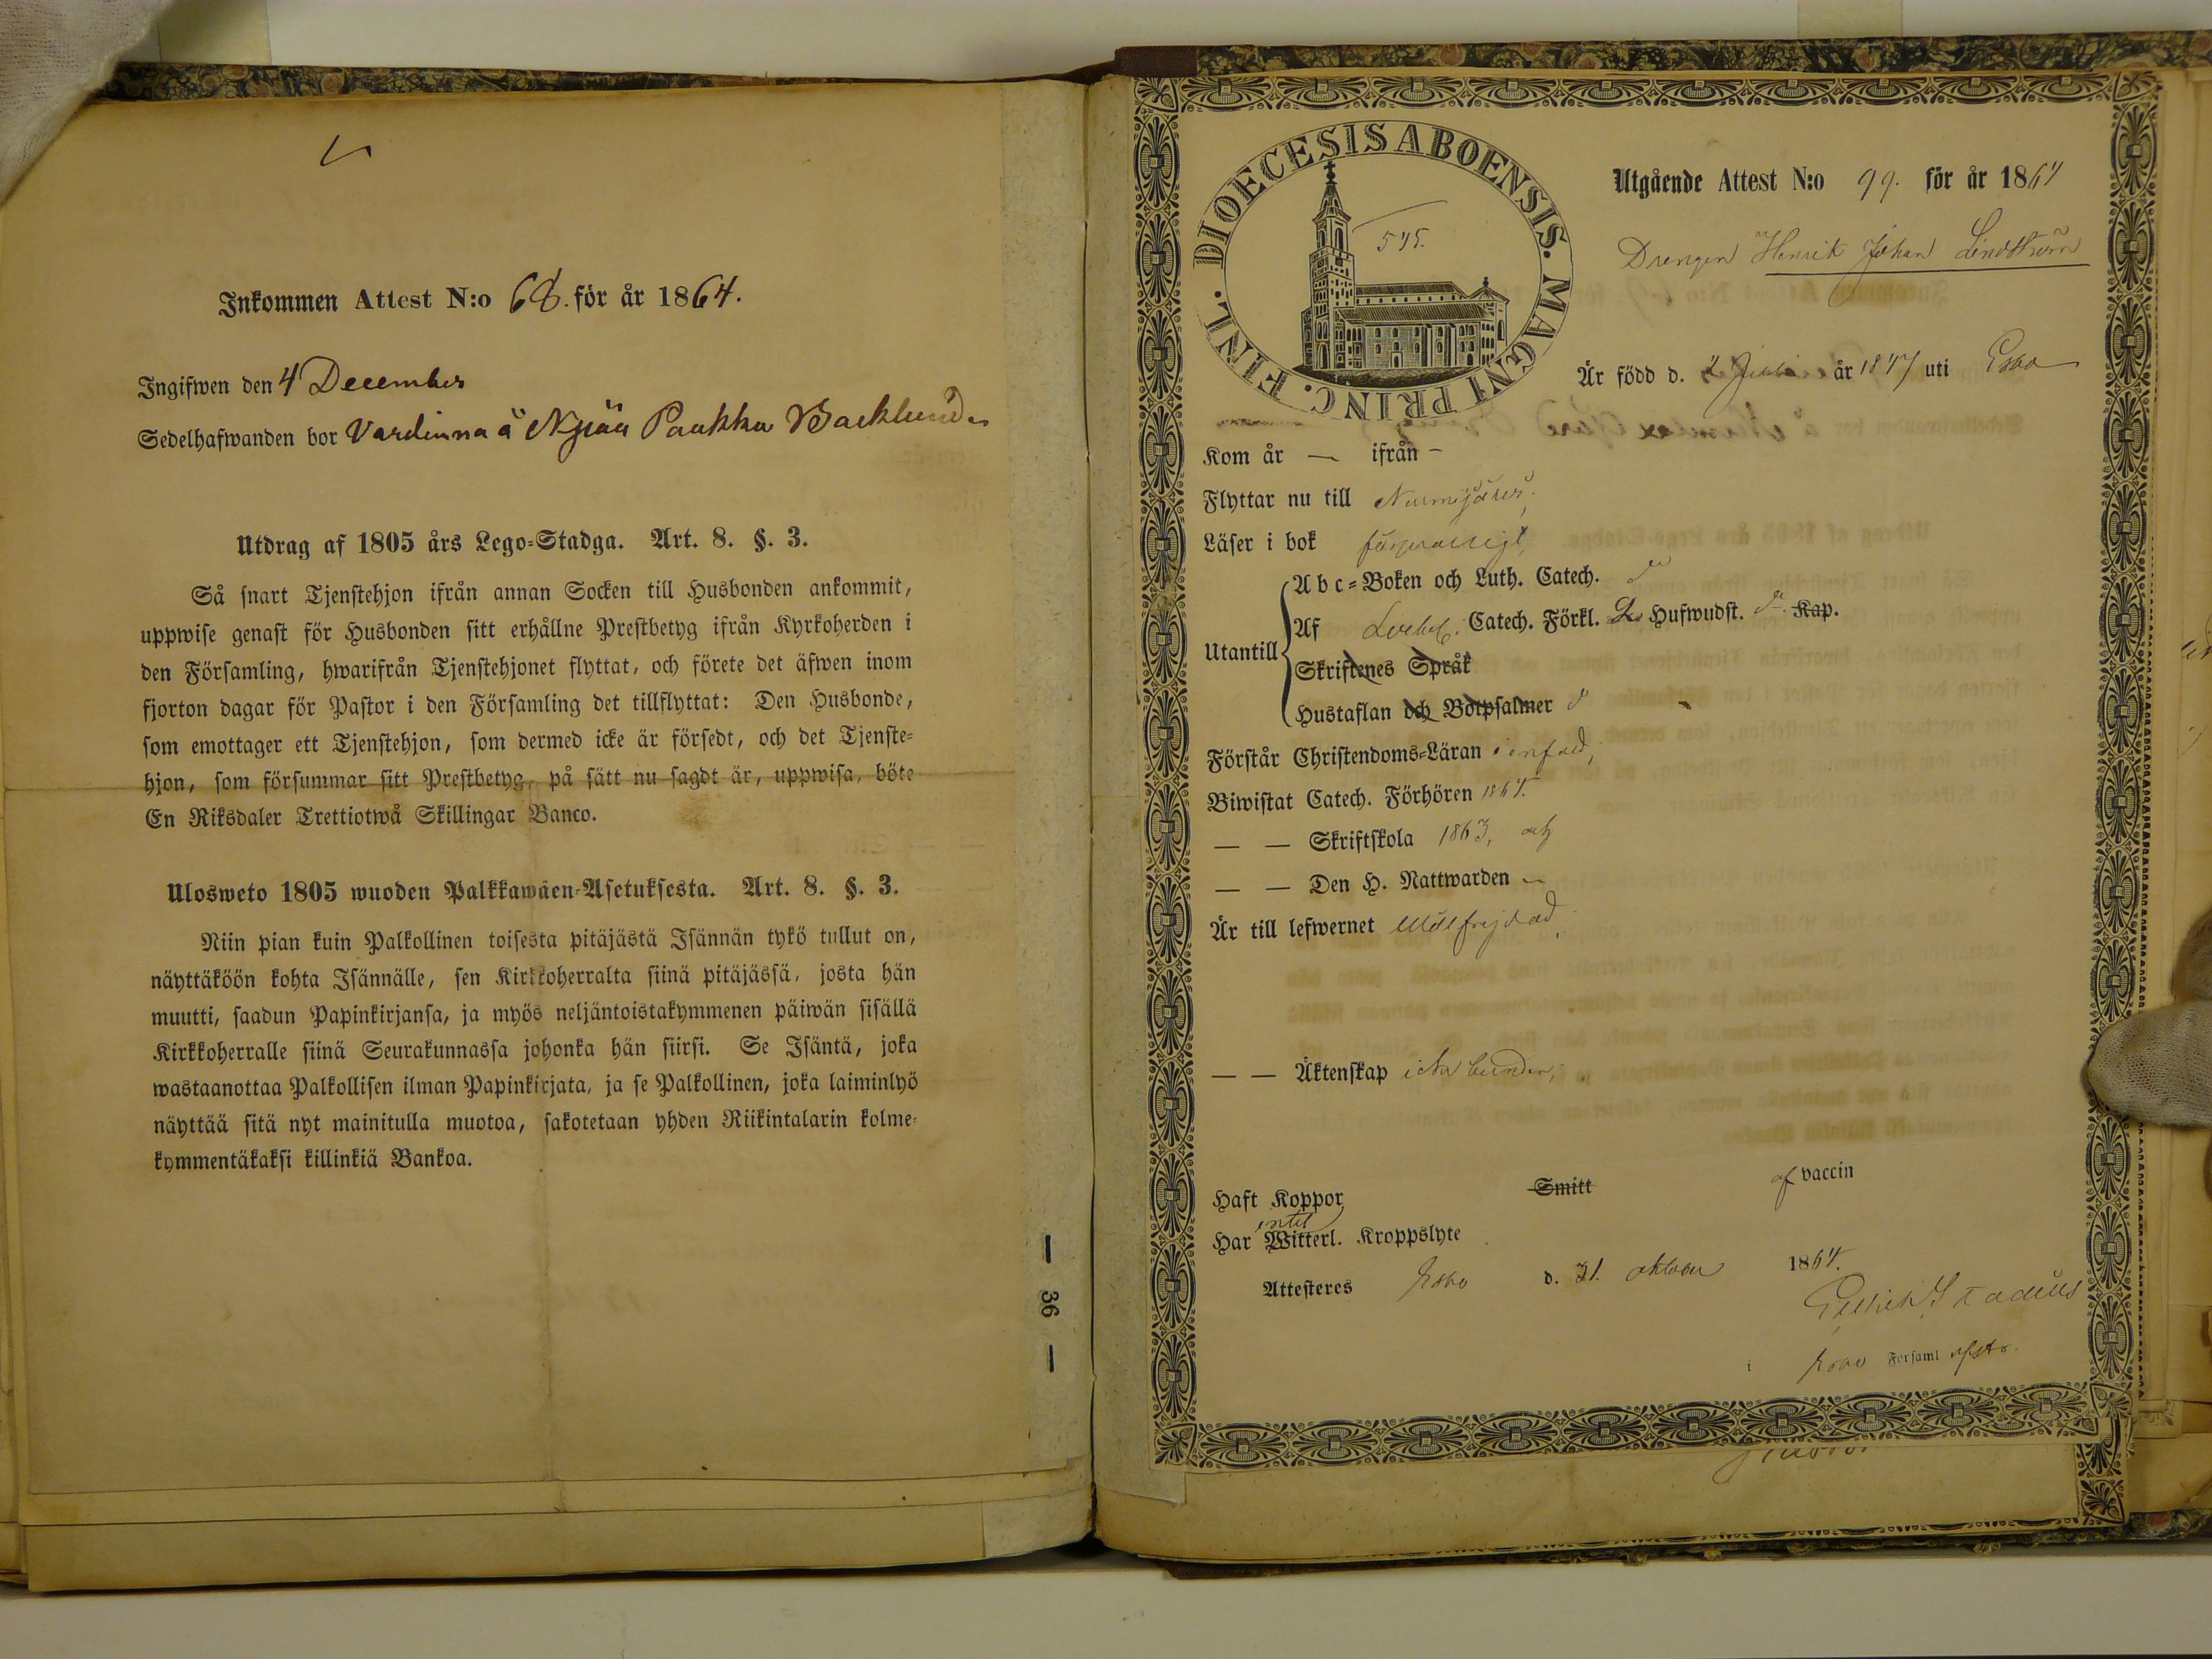 Inkommen Attest N:o 68. för år 1864.
Ingifwen den 4 December
Sedelhafwanden bor Vardinna å Paukku Backlunds
Utdrag af 1805 års Lego-Stadga. Art. 8. §. 3.
Så snart Tjenstehjon ifrån annan Socken till Husbonden ankommit,
uppwise genast för Husbonden sitt erhållne Prestbetyg ifrån Kyrkoherden i
den Församling, hwarifrån Tjenstehjonet flyttat, och förete det äfwen inom
fjorton dagar för Pastor i den Församling det tillflyttat: Den Husbonde,
som emottager ett Tjenstehjon, som dermed icke är försedt, och det Tjenste-
hjon, som försummar sitt Prestbetyg, på sätt nu sagdt är, uppwisa, böte
En Riksdaler Trettiotwå Skillingar Banco.
Ulosweto 1805 wuoden Palkkawäen-Asetuksesta. Art. 8. §. 3.
Niin pian kuin Palkollinen toisesta pitäjästä Isännän tykö tullut on,
näyttäköön kohta Isännälle, sen Kirkkoherralta siinä pitäjässä, josta hän
muutti, saadun Papinkirjansa, ja myös neljäntoistakymmenen päiwän sisällä
Kirkkoherralle siinä Seurakunnassa johonka hän siirsi. Se Isäntä, joka
wastaanottaa Palkollisen ilman Papinkirjata, ja se Palkollinen, joka laiminlyö
näyttää sitä nyt mainitulla muotoa, sakotetaan yhden Riikintalarin kolme-
kymmentäkaksi killinkiä Bankoa.
— 36 —
DIOECESIS ABOENSIS. MAGNI PRINC. FINL.
545.
Utgående Attest N:o 99. för år 1864
Drengen Henrik Johan Lindström
Är född d. år 1847 uti Esbo
Kom år — ifrån —
Flyttar nu till Nurmijärvi,
Läser i bok försvarligt,
Abc-Boken och Luth. Catech. do
Utantill
Af Catech. Förkl. Hufwudst. do. Kap.
Skriftenes Språk
Hustaflan och Botpsalmer do
Förstår Christendoms-Läran i enfald,
Biwistat Catech. Förhören 1864.
— — Skriftskola 1863, och
— — Den H. Nattwarden —
Är till lefwernet Wälfrejdad,
— — Äktenskap icke bunden,
Haft Koppor Smitt af vaccin
intet
Har Witterl. Kroppslyte
Attesteres Esbo d. 31. oktober 1864.
Stadius
i Esbo Forsaml